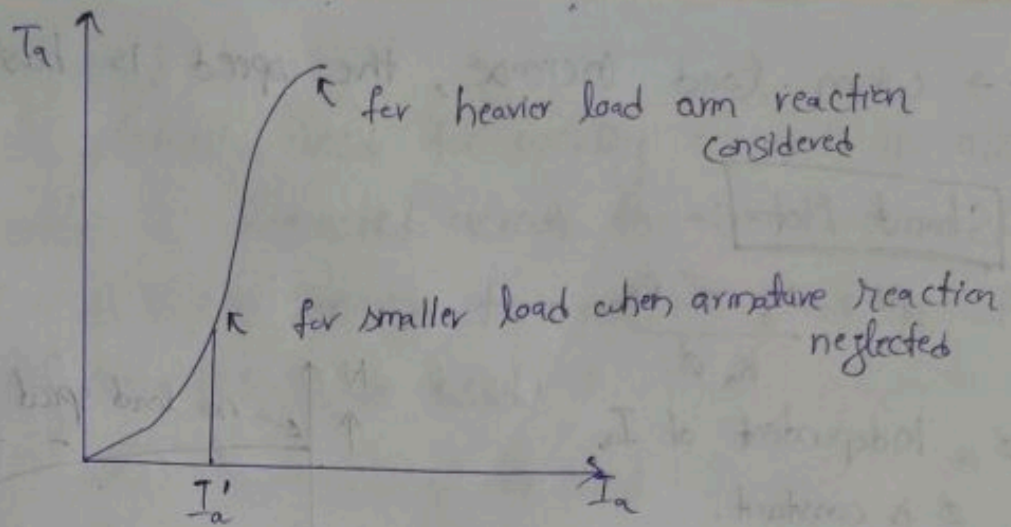 Ta
for heavier load arm reaction
considered
for smaller load when armature reaction
neglected
Ia'
Ia